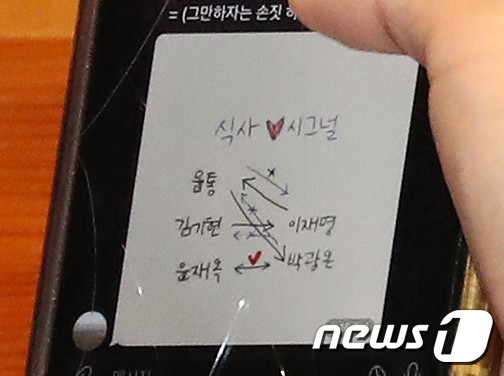 = (그만하자는 손짓 하
식사 ♥ 시그널
윤통
김기현 이재명
윤재옥 박광온
news1